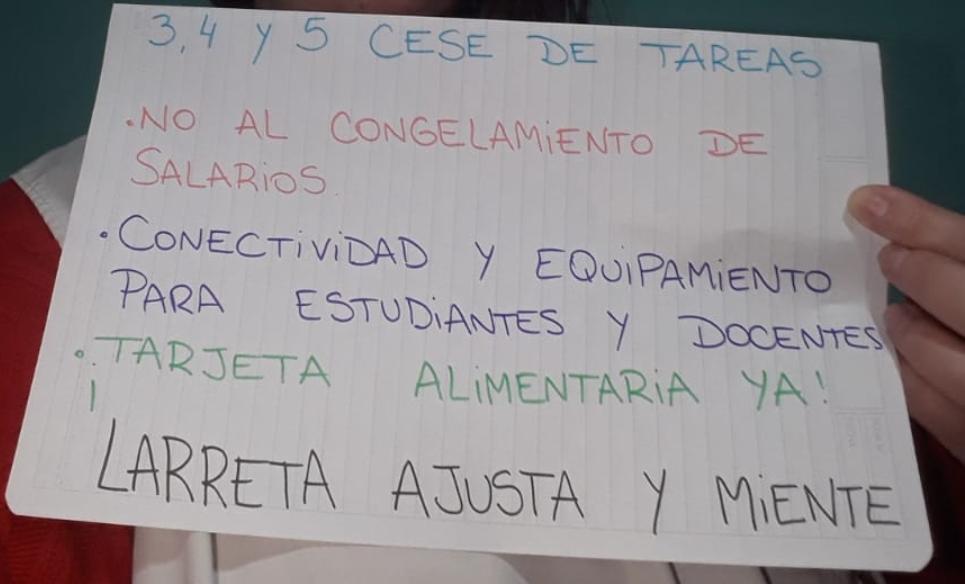 3,4 Y 5 CESE DE TAREAS
.NO AL CONGELAMiENTO DE
SALARiOS.
.CONECTiViDAD Y EQUiPAMiENTO
PARA ESTUDiANTES Y DOCENTES
.¡TARJETA ALiMENTARiA YA!
LARRETA AJUSTA Y MiENTE